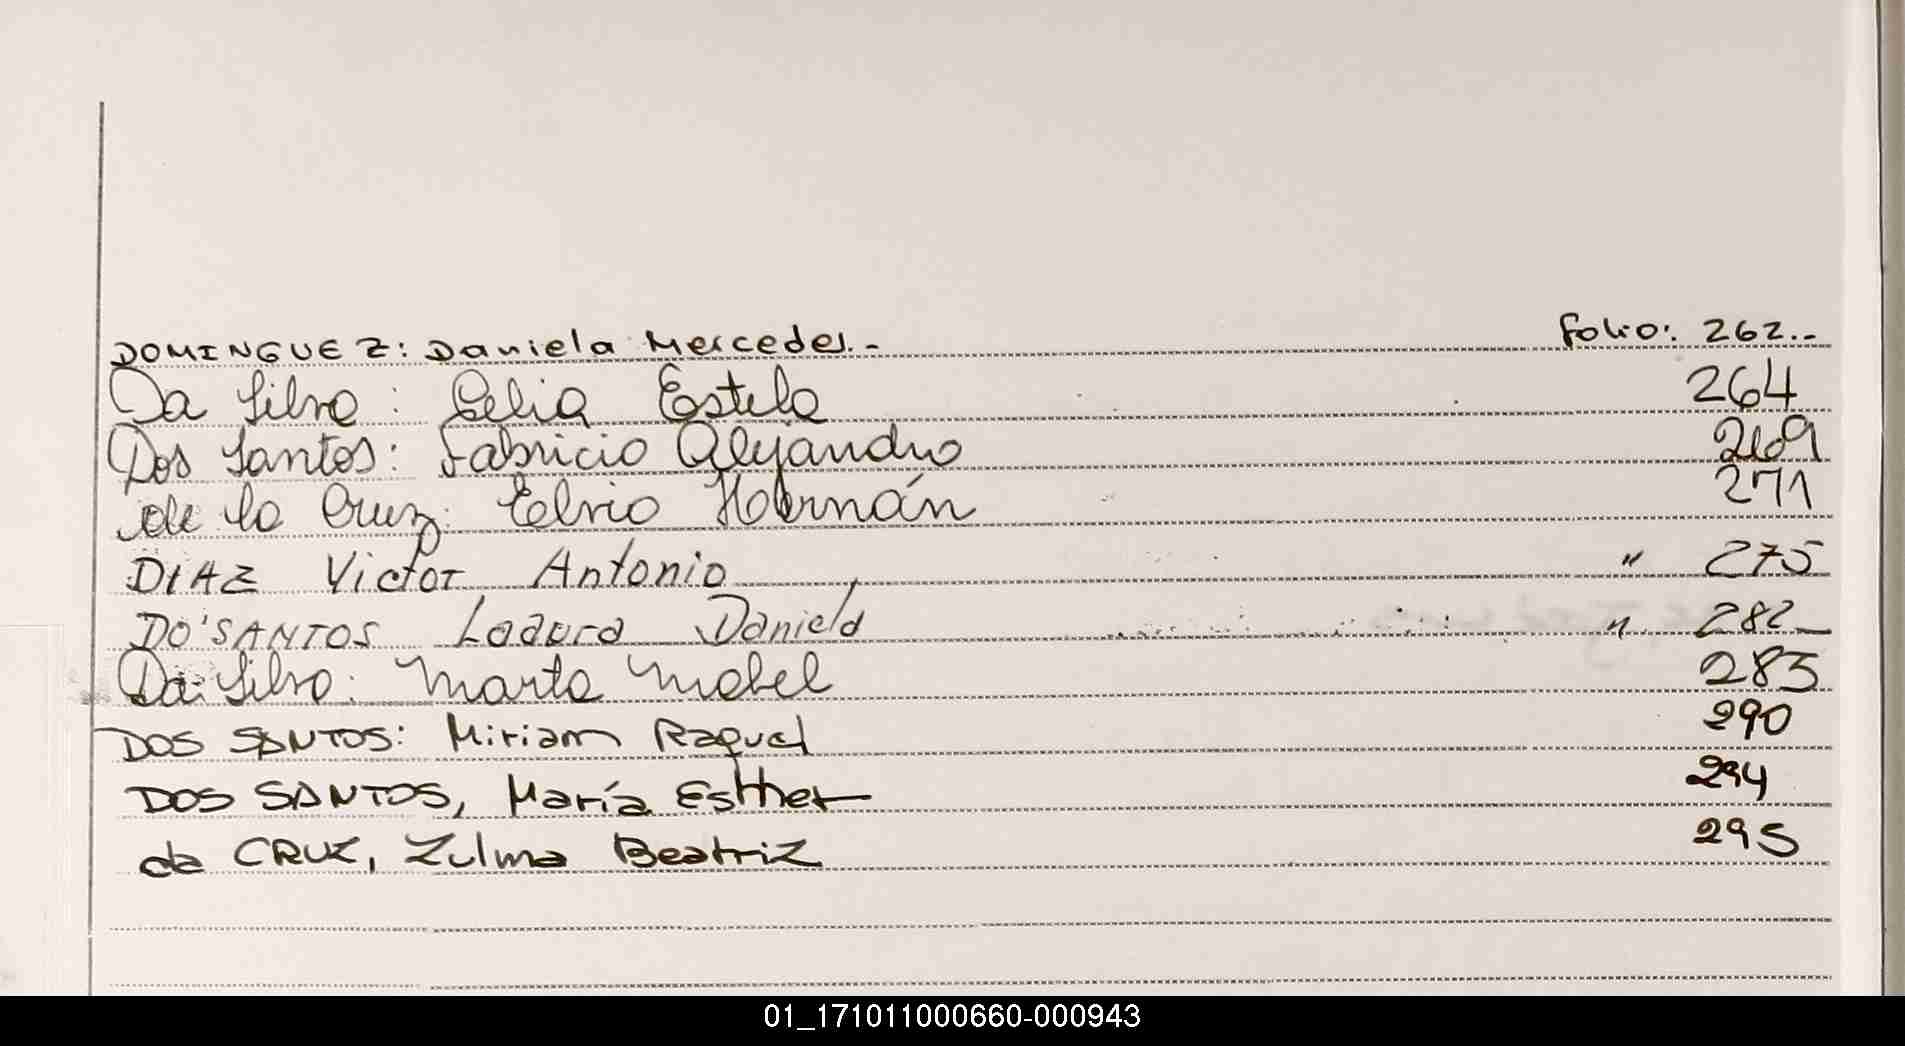 DOMINGUEZ: Daniela Mercedes.- folio: 262.-
Da Silva: Celia Estela 264
Dos Santos: Fabricio Alejandro 269
de la Cruz: Elvio Hernán 271
DIAZ Victor Antonio " 275
DO'SANTOS Laaura Daniela " 282_
Da Silva: Marta Mabel 283
DOS SANTOS: Miriam Raquel 290
DOS SANTOS, María Esther 294
da CRUZ, Zulma Beatriz 295
01_171011000660-000943